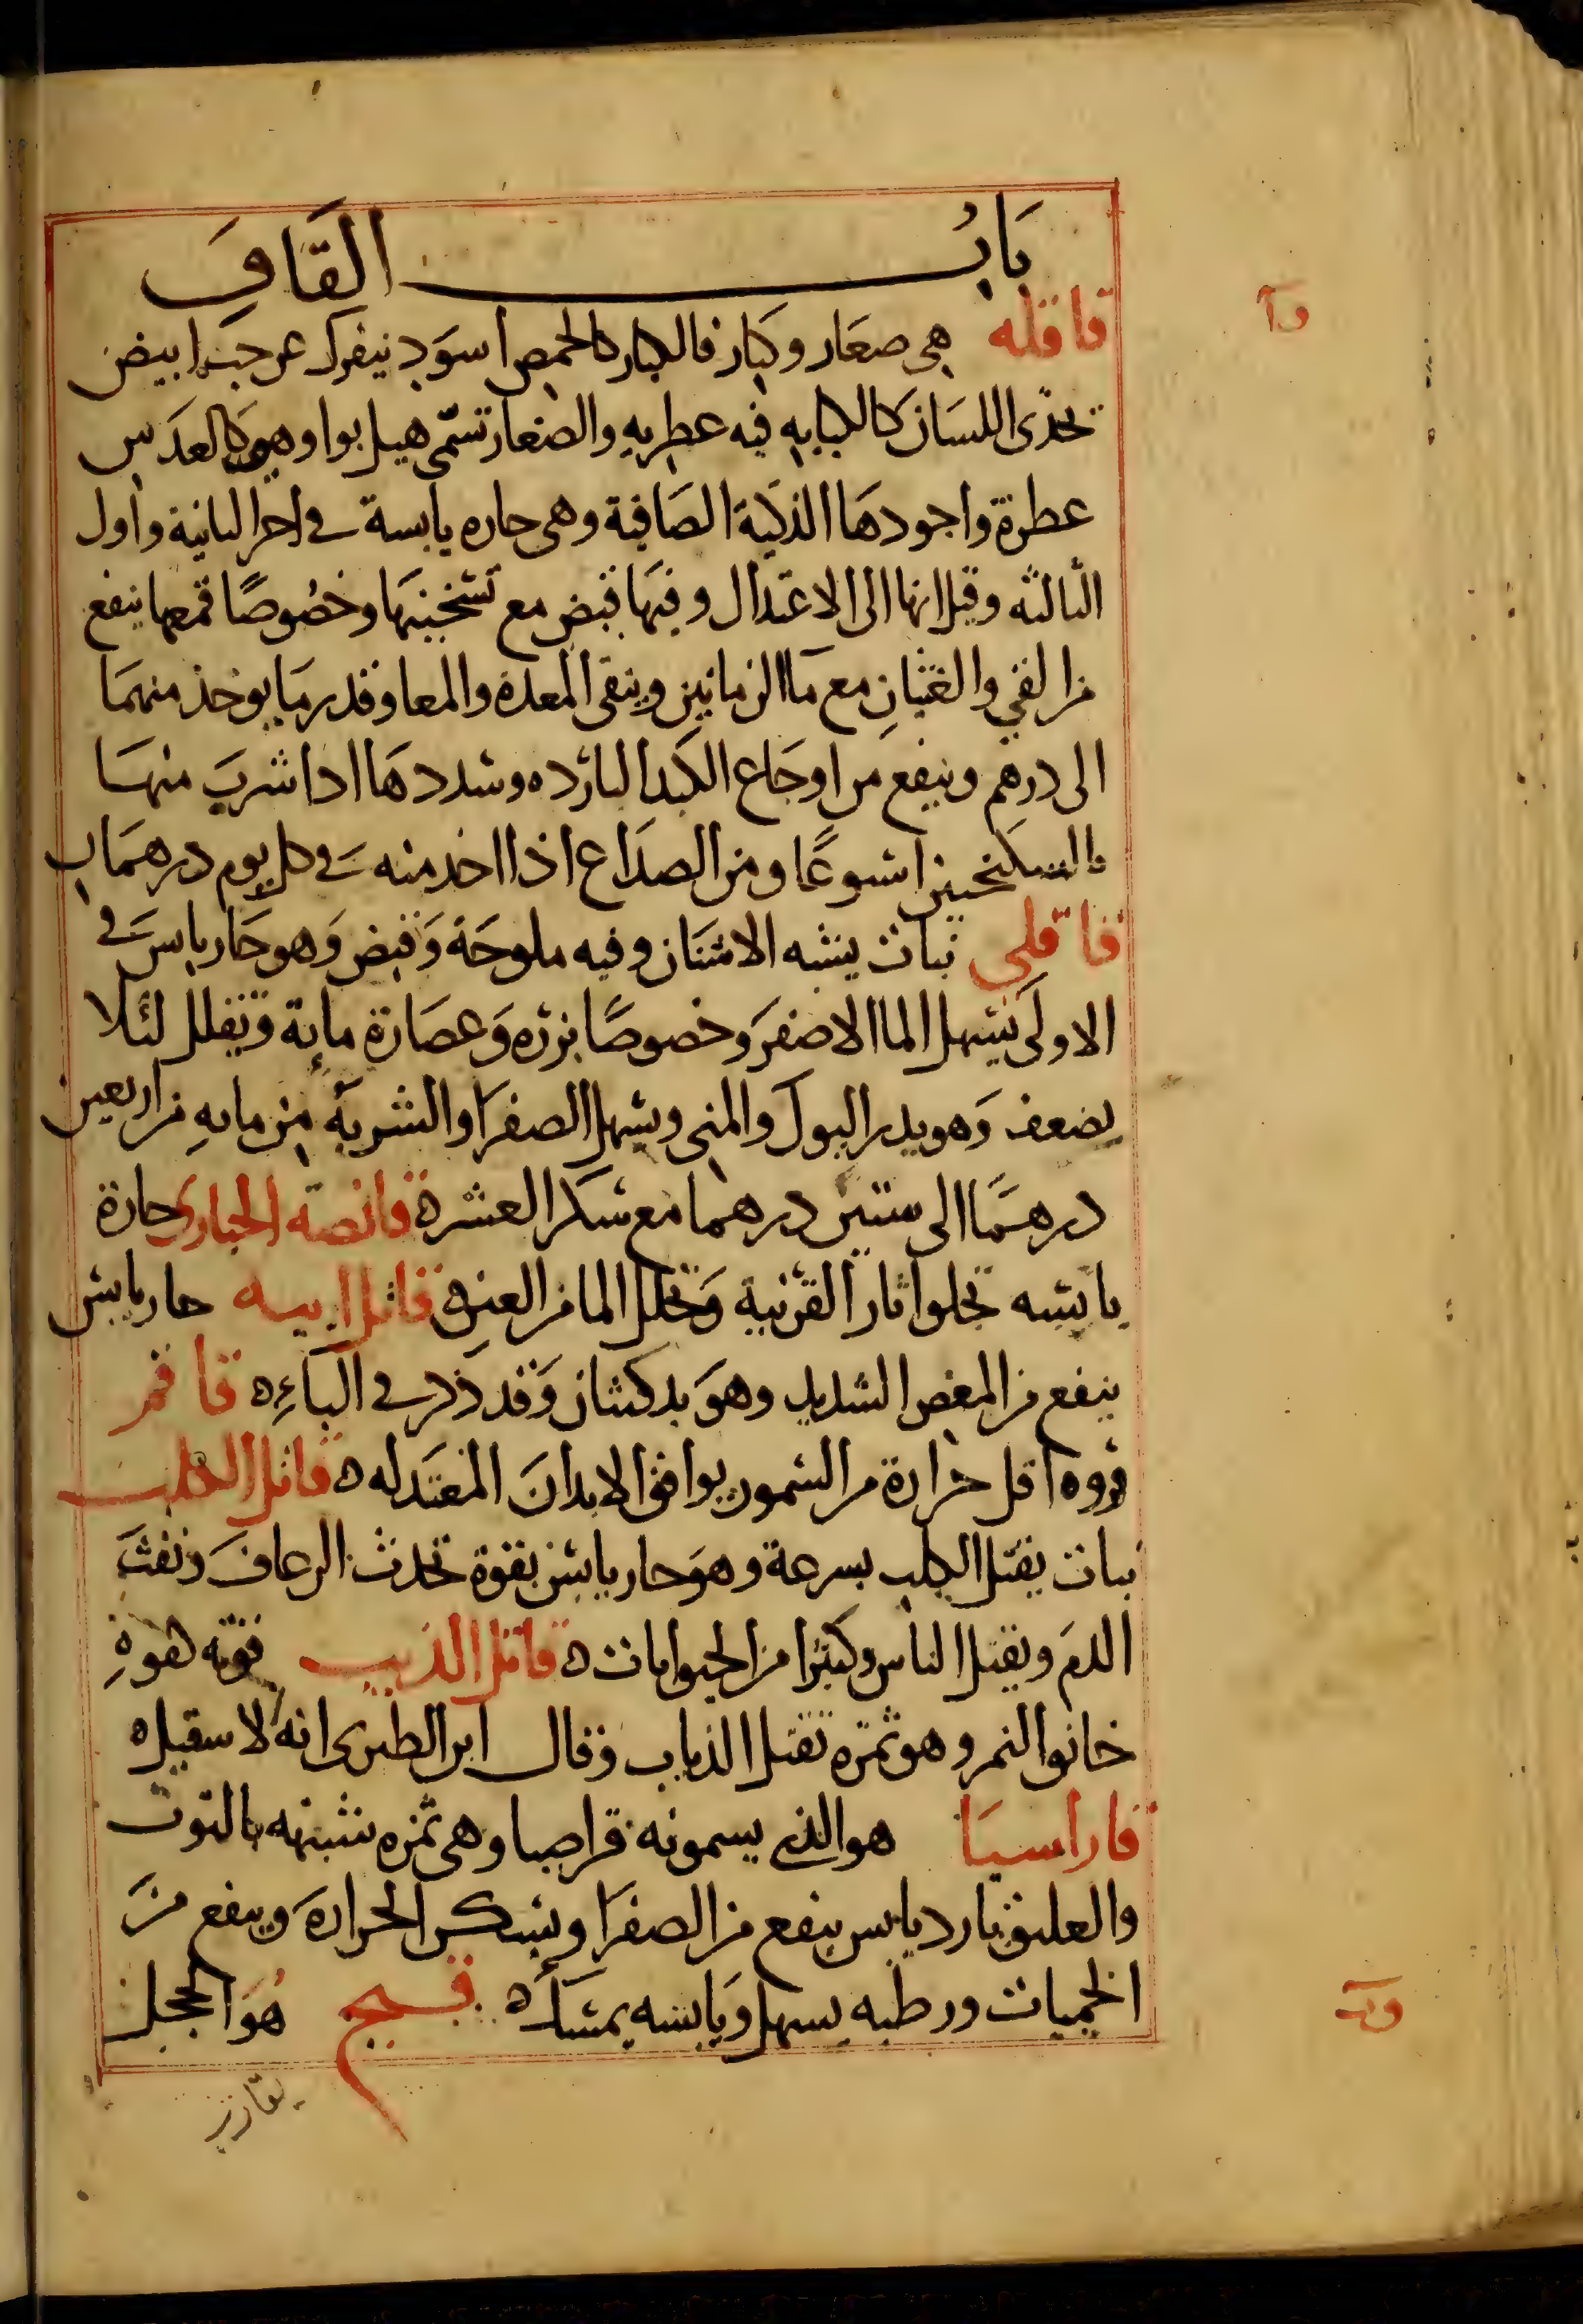 باب القاف
قاقله هي صغار وكبار فالكبار كالحمص اسود ينفرك عن حب ابيض
يحذى اللسان كالكبابه فيه عطريه والصغار تسمى هيل بوا وهي كالعدس
عطرة واجودها الذكية الصافية وهى حاره يابسة في اخر الثانية واول
الثالثه وقيل انها الى الاعتدال وفيها قبض مع تسخينها وخصوصًا قمعها ينفع
من القي والغثيان مع ما الرمانين وينقى المعدة والمعا وقدر ما يوخذ منهما
الى درهم وينفع من اوجاع الكبد البارده وسددها اذا شرب منها
بالسكنجبين اسبوعًا ومن الصداع اذا اخذ منه في كل يوم درهمان
قاقلى نبات يشبه الاشنان وفيه ملوحة وقبض وهو حار يابس في
الاولى يسهل الما الاصفر وخصوصًا بزره وعصارة مايه وتقلل لئلا
يضعف وهو يدر البول والمنى ويسهل الصفرا والشربة من مايه من اربعين
درهمًا الى ستين درهما مع سكر العشرة ه قانصة الحبارى حارة
يابسه تجلوا اثار القرنية وتحلل الما من العين ه قاتل ابيه حار يابس
ينفع من المغص الشديد وهو بدكشان وقد ذكر في الباء ه قاقم
فروه اقل حرارة من السمور يوافق الابدان المعتدله ه قاتل الكلب
نبات يقتل الكلب بسرعة وهو حار يابس بقوة تحدث الرعاف ونفث
الدم ويقتل الناس وكثيرا من الحيوانات ه قاتل الذيب قوته كقوة
خانق النمر وهو ثمره تقتل الذياب وقال ابن الطبرى انه الاسقيل ه
قاراسيا هو الذي يسمونه قراصيا وهى ثمره تشبه بالتوت
والعليق بارد يابس ينفع من الصفرا ويسكن الحرارة وينفع من
الحميات ورطبه يسهل ويابسه يمسك ه قبج هو الحجل
قا
قب